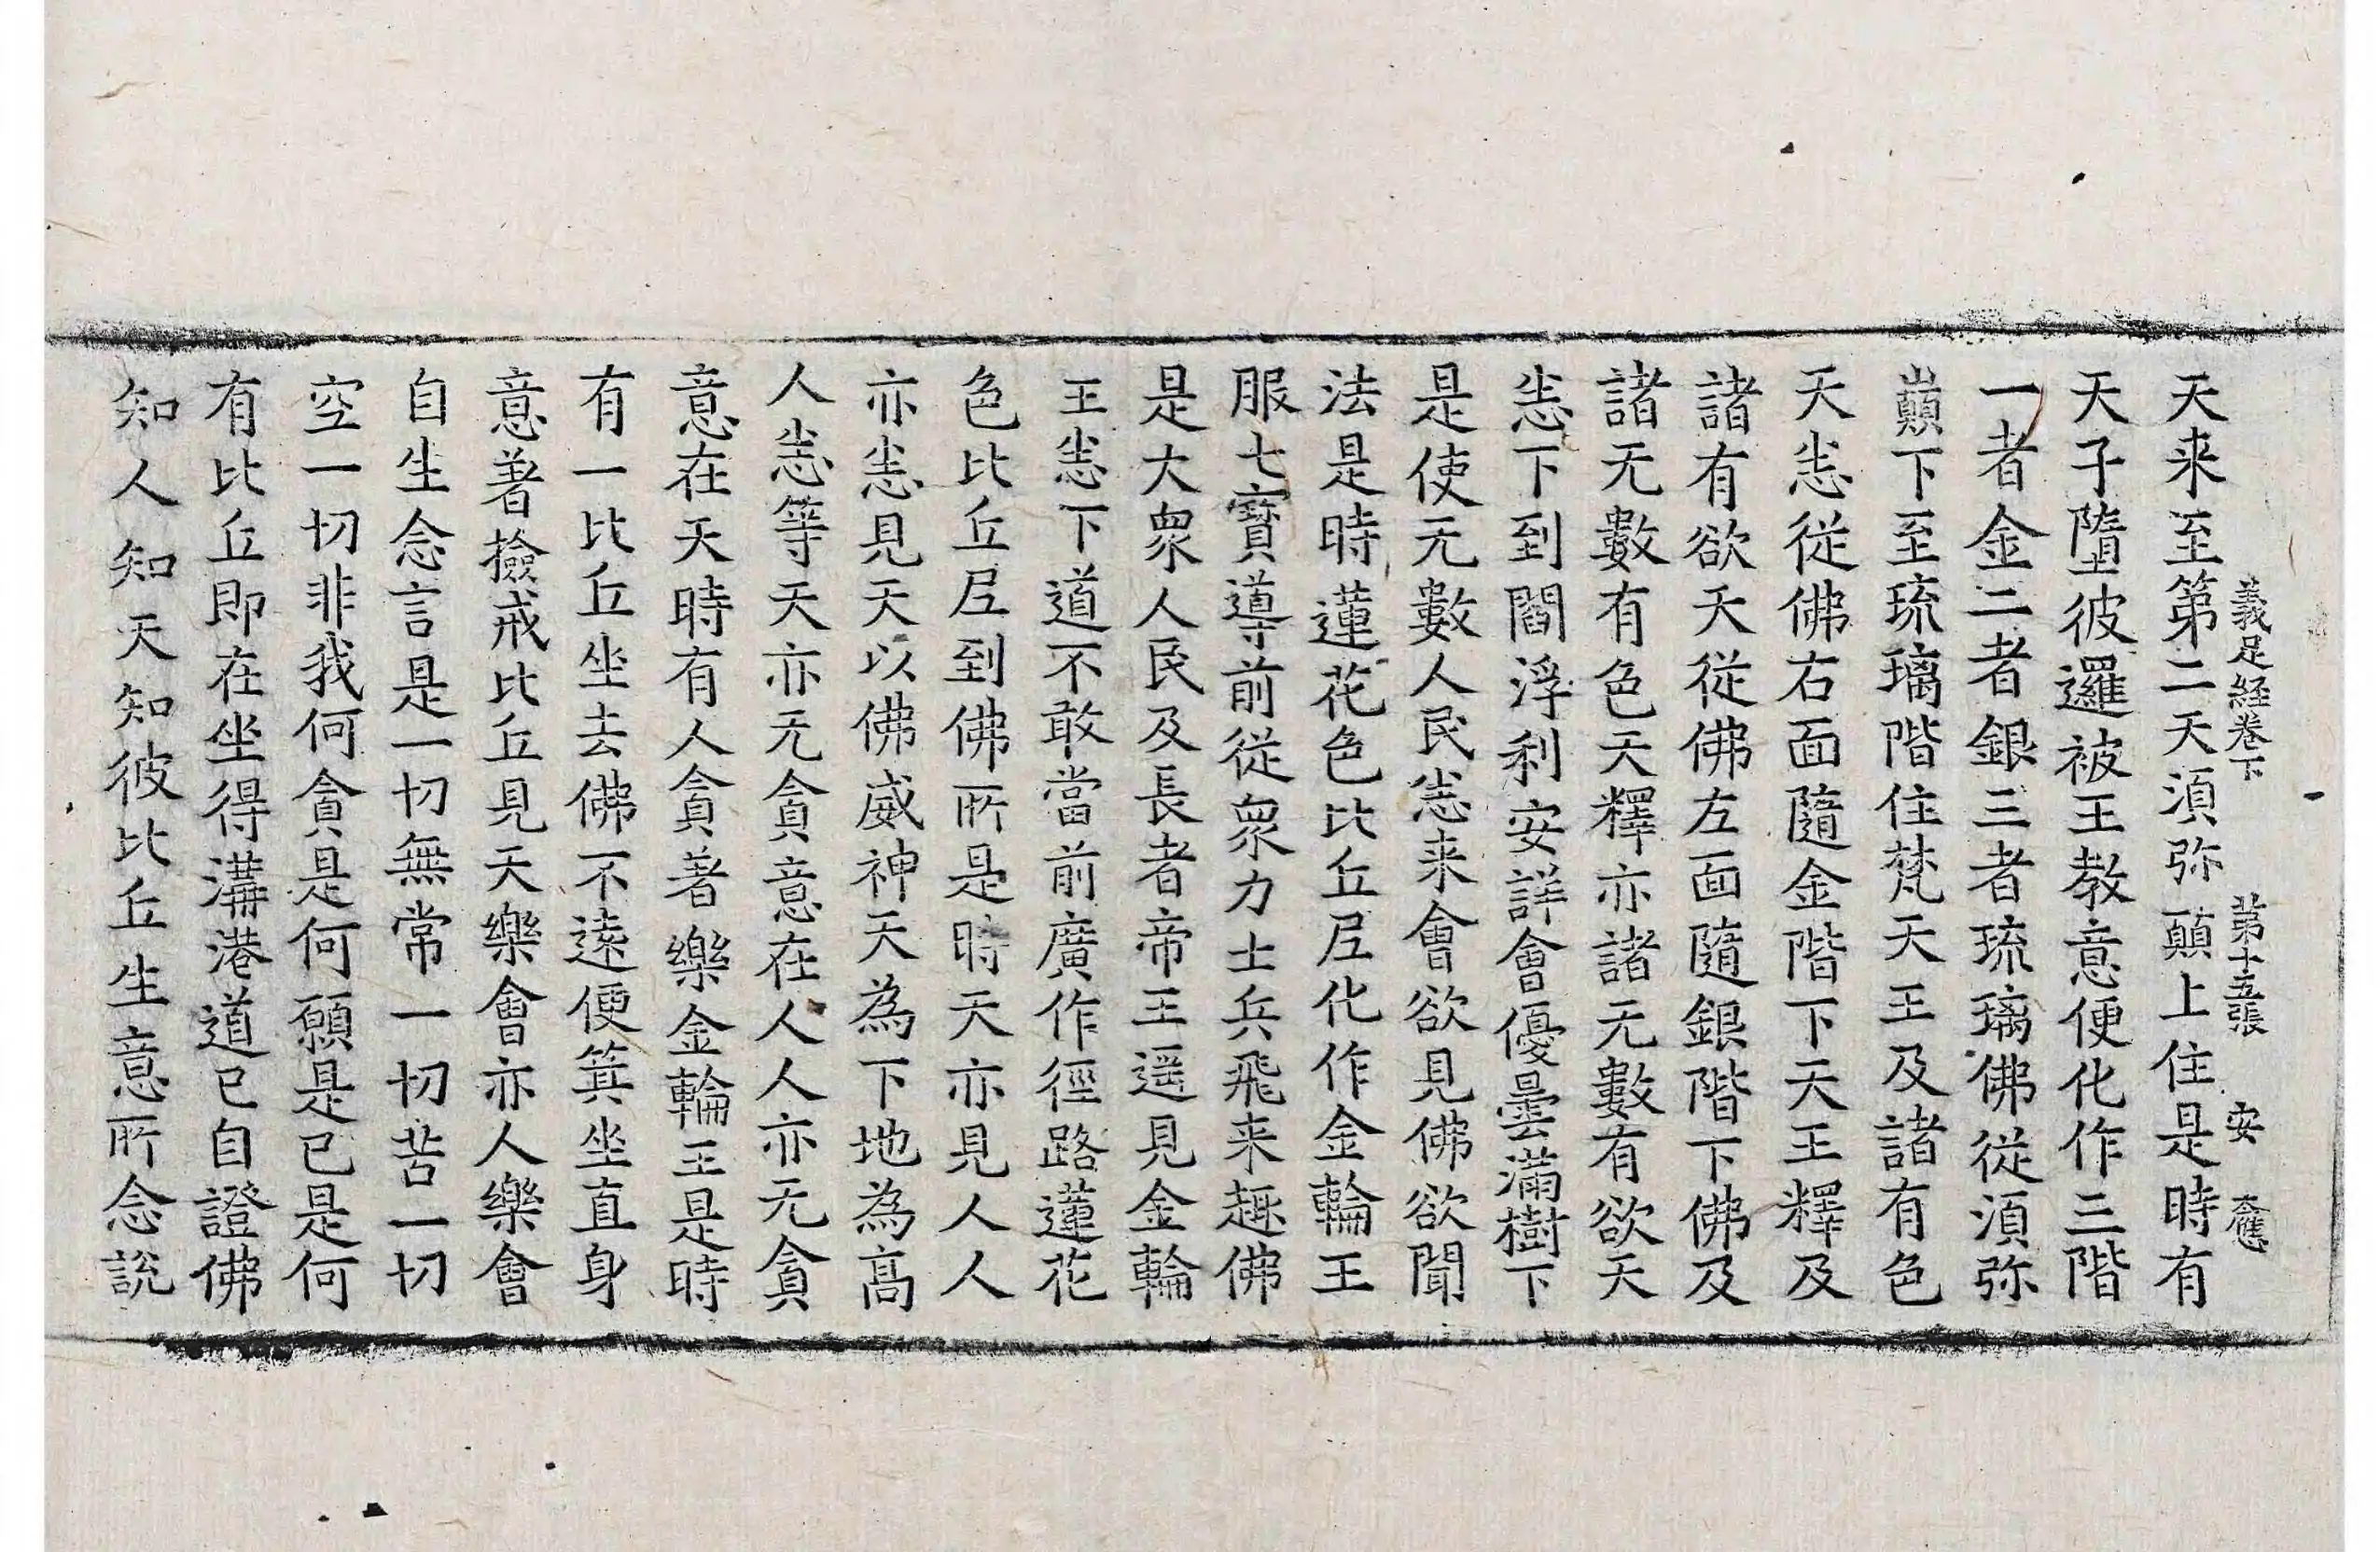 義足經卷下 第十五張 安
天来至第二天湏弥顚上住是時有
天子墮彼邏被王教意便化作三階
一者金二者銀三者琉璃佛從湏弥
巓下至琉璃階住梵天王及諸有色
天㤙從佛右面隨金階下天王釋及
諸有欲天從佛左面隨銀階下佛及
諸无數有色天釋亦諸无數有欲天
㤙下到閻浮利安詳會優曇滿樹下
是使无數人民㤙来會欲見佛欲聞
法是時蓮花色比丘尼化作金輪王
服七寶導前從衆力士兵飛来趣佛
是大衆人民及長者帝王遥見金輪
王㤙下道不敢當前廣作徑路蓮花
色比丘尼到佛所是時天亦見人人
亦㤙見天以佛威神天為下地為髙
人㤙等天亦无貪意在人人亦无貪
意在天時有人貪著樂金輪王是時
有一比丘坐去佛不逺便箕坐直身
意著撿戒比丘見天樂會亦人樂會
自生念言是一切無常一切苦一切
空一切非我何貪是何願是已是何
有比丘即在坐得溝港道已自證佛
知人知天知彼比丘生意所念說